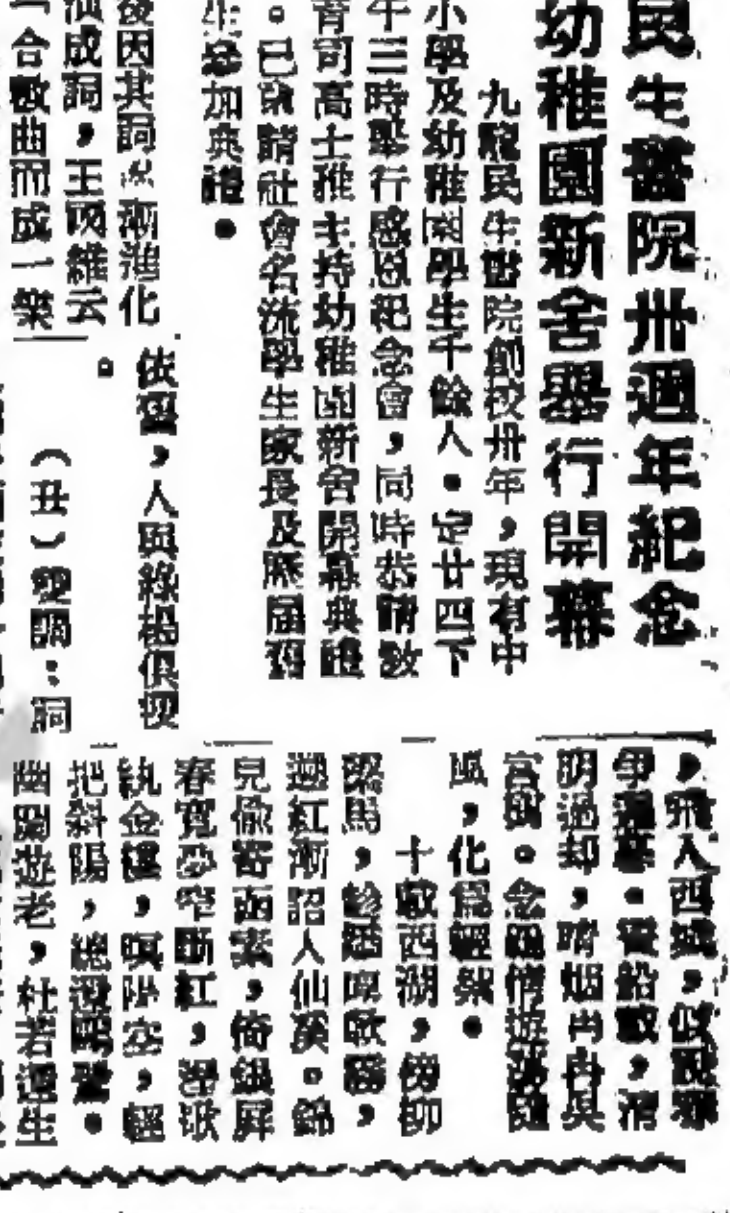 民生書院卅週年紀念
幼稚園新舍舉行開幕
九龍民生書院創校卅年，現有中
小學及幼稚園學生千餘人。定廿四下
午三時舉行感恩紀念會，同時恭請教
育司高士雅主持幼稚園新舍開幕典禮
。已柬請社會名流學生家長及歷屆舊
生參加典禮。
後因其詞 漸進化
成詞，王國維云
一合數曲而成一樂
依 ，人與綠楊俱瘦
。
（丑）雙調：詞
，飛入西城，似說邢
爭過 。 船散，清
明過却，晴烟冉冉吳
宮樹。念羈情遊蕩隨
風，化為輕絮。
十載西湖，傍柳
繫馬，趁嬌塵軟霧，
遡紅漸招入仙溪。錦
兒偷寄幽素，倚銀屏
春寬夢窄斷紅，濕歌
紈金縷，暝隄空，輕
把斜陽，總還鷗鷺。
幽蘭旋老，杜若還生